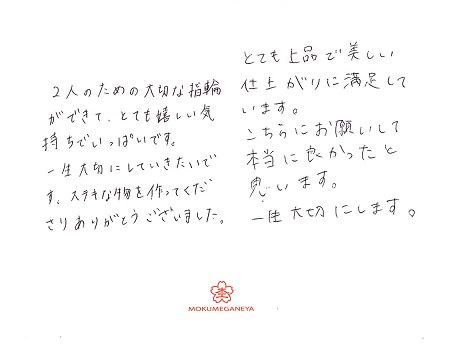 2人のための大切な指輪
ができて、とても嬉しい気
持ちでいっぱいです。
一生大切にしていきたいで
す。ステキな物を作ってくだ
さりありがとうございました。
とても上品で美しい
仕上がりに満足して
います。
こちらにお願いして
本当に良かったと
思います。
一生大切にします。
MOKUMEGANEYA